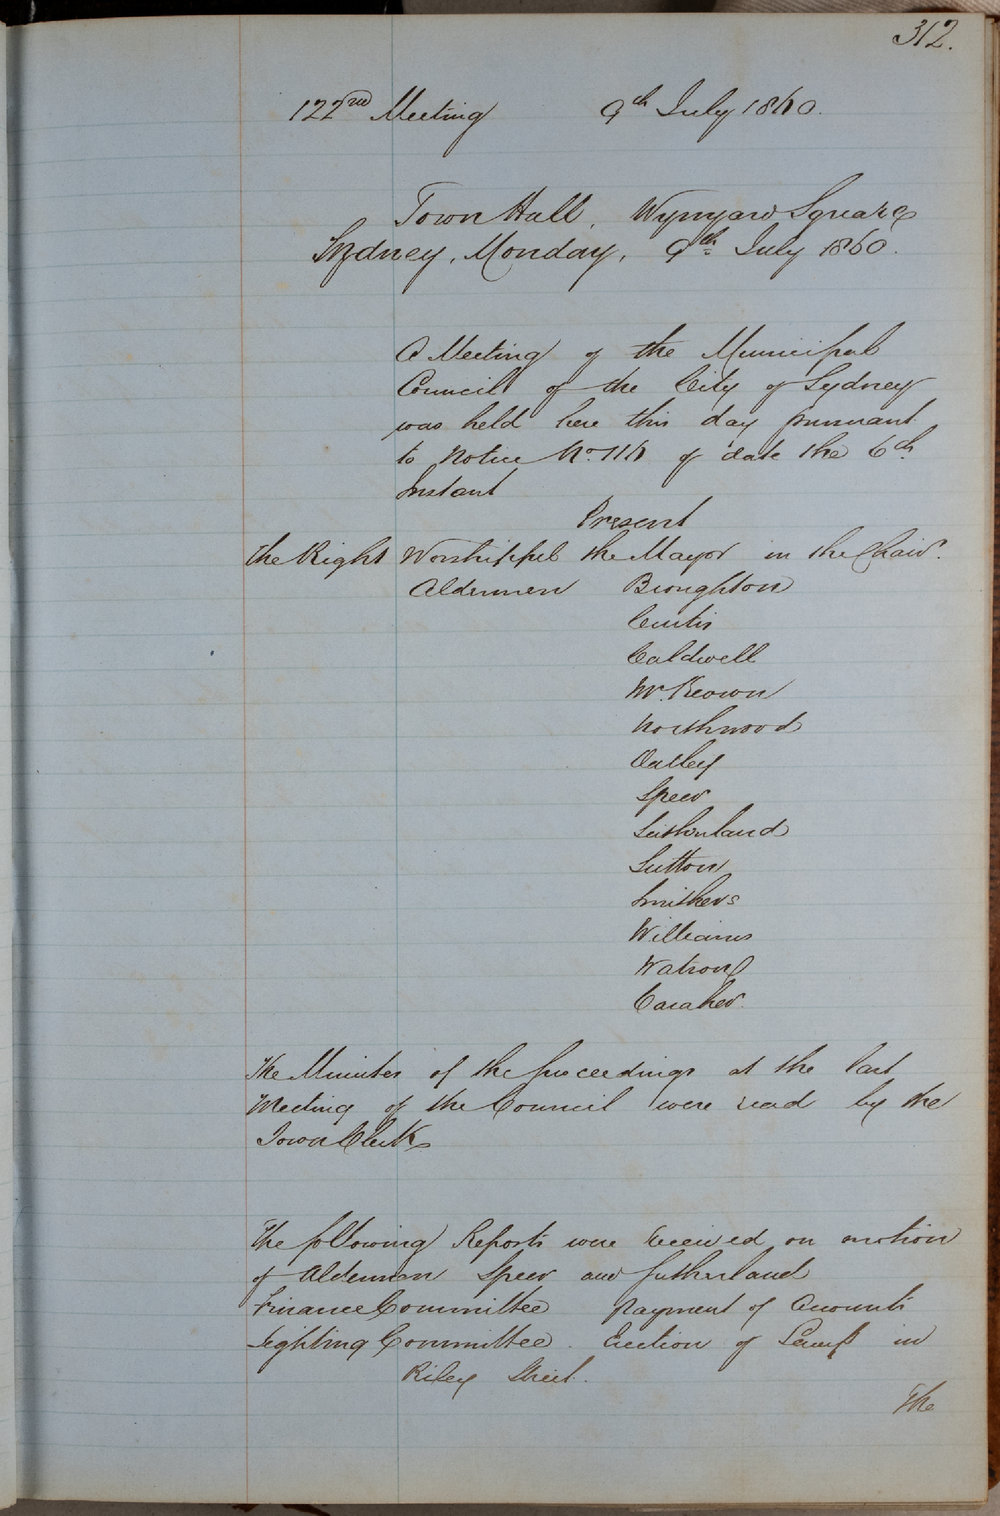 312.
122nd Meeting 9th July 1860.
Town Hall, Wynyard Square
Sydney, Monday, 9th July 1860.
A Meeting of the Municipal
Council of the City of Sydney
was held here this day pursuant
to Notice No. of date the 6th
Instant
Present
The Right Worshipful the Mayor in the Chair.
Aldermen Broughton
Curtis
Caldwell
McKeown
Northwood
Oatley
Speer
Sutherland
Sutton
Smithers
Williams
Watson
Caraher.
The Minutes of the proceedings at the last
Meeting of the Council were read by the
Town Clerk
The following Reports were received on motion
of Aldermen Speer and Sutherland
Finance Committee Payment of Accounts
Lighting Committee. Erection of Lamp in
Riley Street.
The